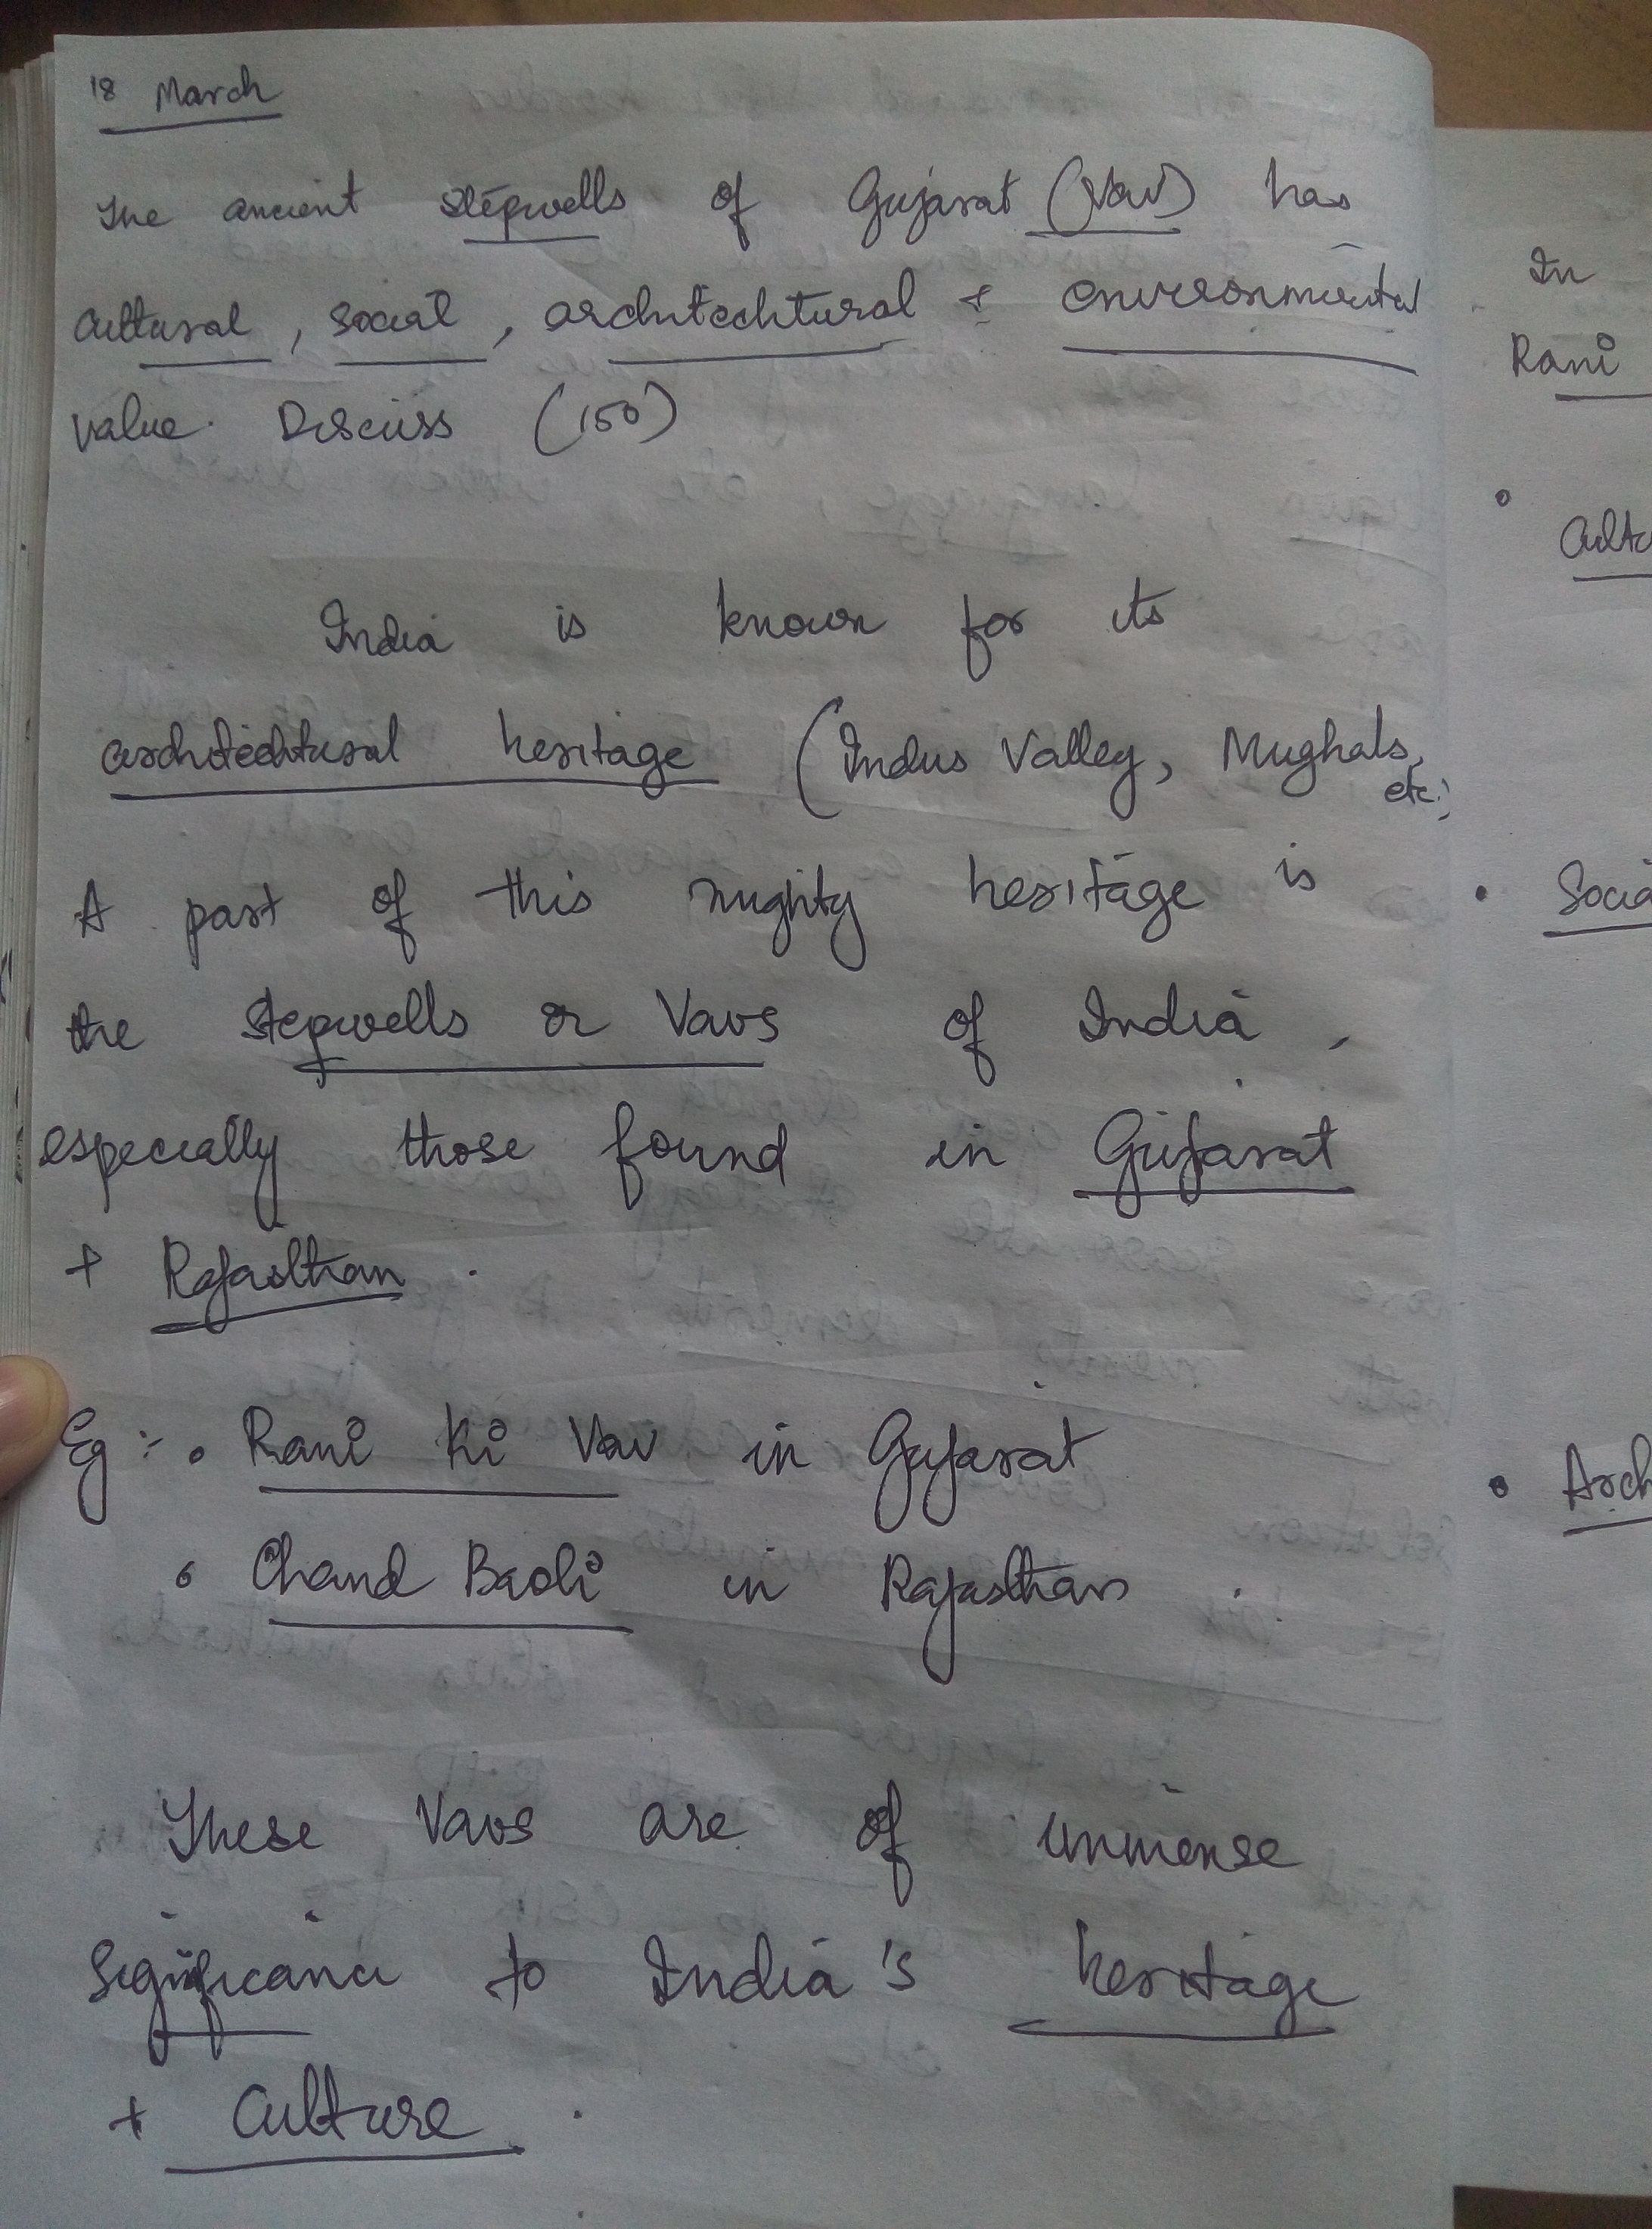 18 March
The ancient stepwells of Gujarat (Vav) has
cultural, social, architechtural & environmental
value. Discuss (150)
India is known for its
architechtural heritage (Indus Valley, Mughals,
etc.)
A part of this mighty heritage is
the stepwells or Vavs of India,
especially those found in Gujarat
+ Rajasthan.
Eg :- • Rani Ki Vav in Gujarat
• Chand Baoli in Rajasthan.
These Vavs are of immense
significance to India's heritage
+ Culture.
In
Rani
•
• Socia
• Arch